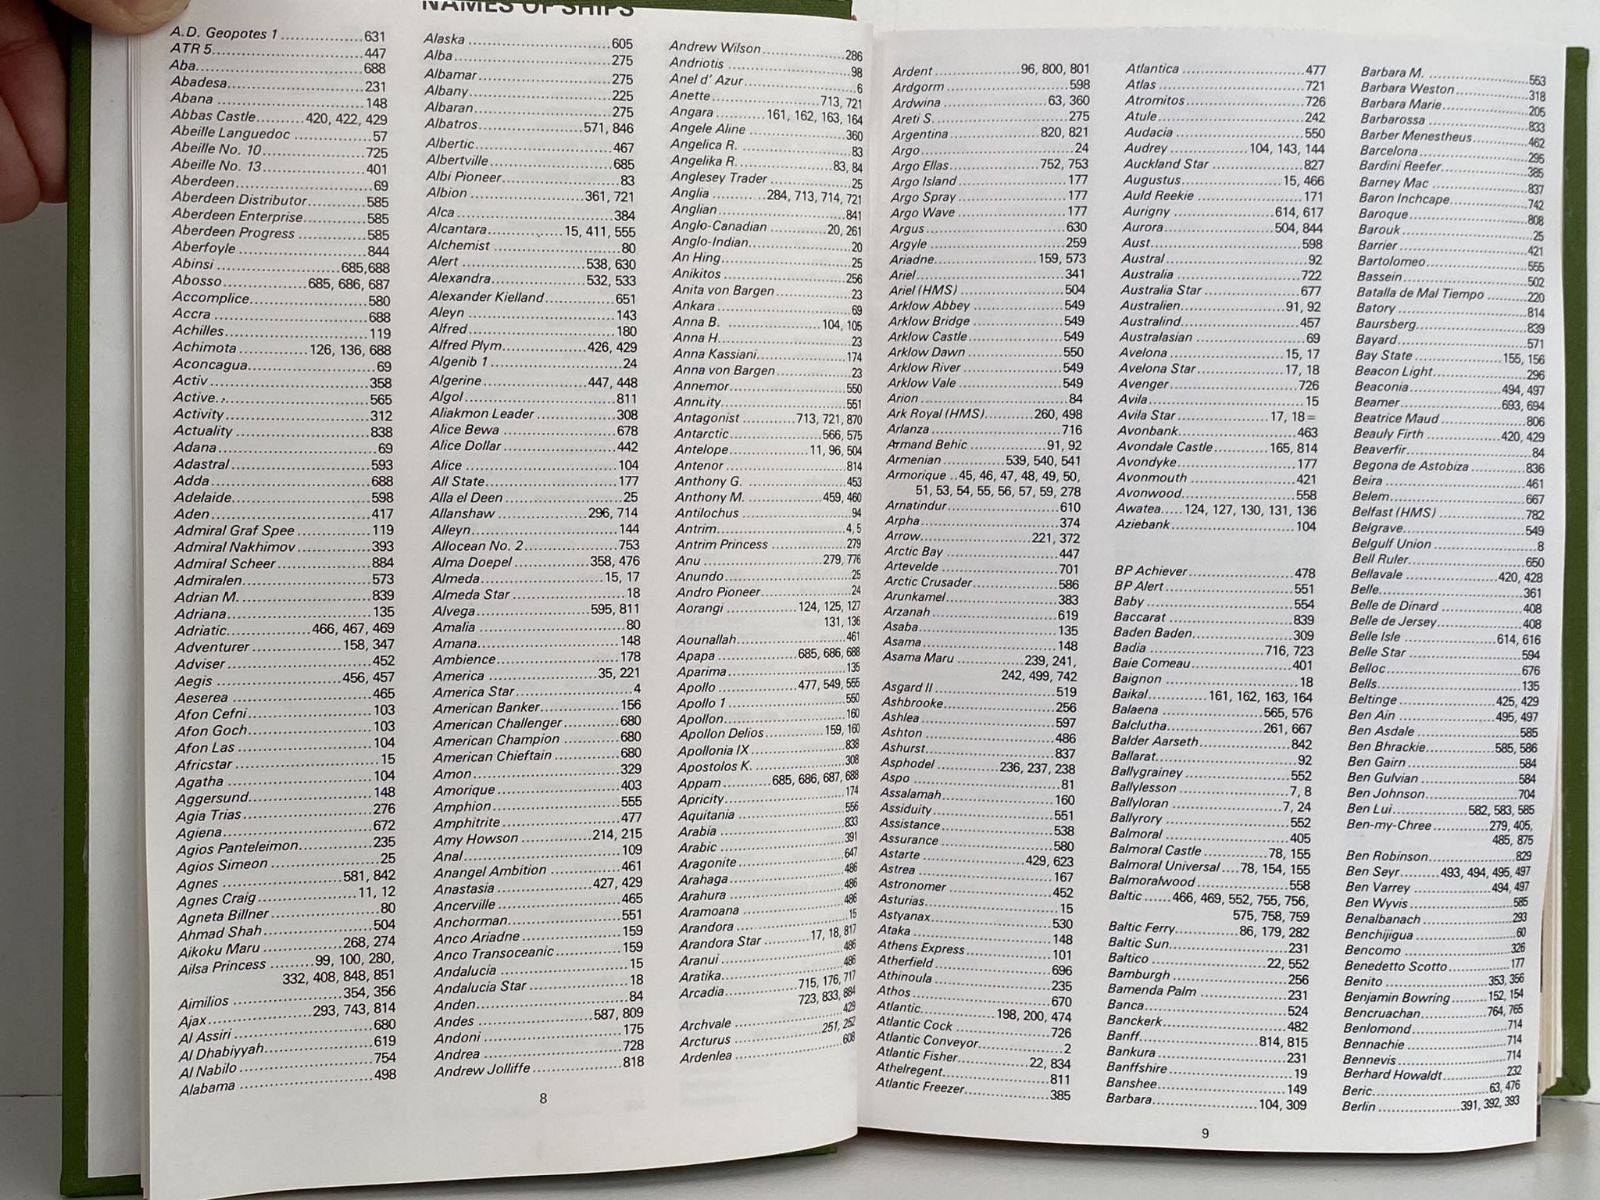 NAMES OF SHIPS
A.D. Geopotes 1 ..................631
ATR 5..................447
Aba..................688
Abadesa..................231
Abana ..................148
Abbas Castle..................420, 422, 429
Abeille Languedoc ..................57
Abeille No. 10..................725
Abeille No. 13..................401
Aberdeen..................69
Aberdeen Distributor..................585
Aberdeen Enterprise..................585
Aberdeen Progress ..................585
Aberfoyle ..................844
Abinsi ..................685,688
Abosso..................685, 686, 687
Accomplice..................580
Accra ..................688
Achilles..................119
Achimota ..................126, 136, 688
Aconcagua..................69
Activ..................358
Active..................565
Activity ..................312
Actuality ..................838
Adana ..................69
Adastral ..................593
Adda ..................688
Adelaide..................598
Aden..................417
Admiral Graf Spee ..................119
Admiral Nakhimov..................393
Admiral Scheer ..................884
Admiralen..................573
Adrian M. ..................839
Adriana..................135
Adriatic..................466, 467, 469
Adventurer ..................158, 347
Adviser ..................452
Aegis ..................456, 457
Aeserea ..................465
Afon Cefni..................103
Afon Goch..................103
Afon Las ..................104
Africstar ..................15
Agatha ..................104
Aggersund..................148
Agia Trias ..................276
Agiena ..................672
Agios Panteleimon..................235
Agios Simeon ..................25
Agnes ..................581, 842
Agnes Craig..................11, 12
Agneta Billner ..................80
Ahmad Shah..................504
Aikoku Maru ..................268, 274
Ailsa Princess ..................99, 100, 280,
332, 408, 848, 851
Aimilios ..................354, 356
Ajax..................293, 743, 814
Al Assiri ..................680
Al Dhabiyyah..................619
Al Nabilo ..................754
Alabama ..................498
Alaska ..................605
Alba ..................275
Albamar ..................275
Albany ..................225
Albaran ..................275
Albatros..................571, 846
Albertic ..................467
Albertville ..................685
Albi Pioneer..................83
Albion ..................361, 721
Alca ..................384
Alcantara..................15, 411, 555
Alchemist ..................80
Alert ..................538, 630
Alexandra..................532, 533
Alexander Kielland..................651
Aleyn ..................143
Alfred ..................180
Alfred Plym..................426, 429
Algenib 1 ..................24
Algerine ..................447, 448
Algol ..................811
Aliakmon Leader ..................308
Alice Bewa ..................678
Alice Dollar ..................442
Alice ..................104
All State..................177
Alla el Deen ..................25
Allanshaw ..................296, 714
Alleyn..................144
Allocean No. 2..................753
Alma Doepel ..................358, 476
Almeda..................15, 17
Almeda Star ..................18
Alvega ..................595, 811
Amalia ..................80
Amana..................148
Ambience ..................178
America ..................35, 221
America Star ..................4
American Banker..................156
American Challenger ..................680
American Champion ..................680
American Chieftain ..................680
Amon ..................329
Amorique ..................403
Amphion ..................555
Amphitrite ..................477
Amy Howson ..................214, 215
Anal..................109
Anangel Ambition ..................461
Anastasia ..................427, 429
Ancerville ..................465
Anchorman..................551
Anco Ariadne ..................159
Anco Transoceanic ..................159
Andalucia ..................15
Andalucia Star ..................18
Anden ..................84
Andes ..................587, 809
Andoni ..................175
Andrea ..................728
Andrew Jolliffe ..................818
Andrew Wilson..................286
Andriotis ..................98
Anel d' Azur..................6
Anette ..................713, 721
Angara ..................161, 162, 163, 164
Angele Aline ..................360
Angelica R. ..................83
Angelika R. ..................83, 84
Anglesey Trader ..................25
Anglia ..................284, 713, 714, 721
Anglian ..................841
Anglo-Canadian ..................20, 261
Anglo-Indian..................20
An Hing..................25
Anikitos ..................256
Anita von Bargen ..................23
Ankara ..................69
Anna B. ..................104, 105
Anna H...................23
Anna Kassiani..................174
Anna von Bargen ..................23
Annemor..................550
Annuity ..................551
Antagonist ..................713, 721, 870
Antarctic ..................566, 575
Antelope..................11, 96, 504
Antenor ..................814
Anthony G. ..................453
Anthony M. ..................459, 460
Antilochus ..................94
Antrim..................4, 5
Antrim Princess ..................279
Anu ..................279, 776
Anundo ..................25
Andro Pioneer..................24
Aorangi ..................124, 125, 127
131, 136
Aounallah..................461
Apapa ..................685, 686, 688
Aparima ..................135
Apollo ..................477, 549, 555
Apollo 1 ..................550
Apollon..................160
Apollon Delios ..................159, 160
Apollonia IX ..................838
Apostolos K. ..................308
Appam ..................685, 686, 687, 688
Apricity ..................174
Aquitania ..................556
Arabia ..................833
Arabic ..................391
Aragonite ..................647
Arahaga ..................486
Arahura ..................486
Aramoana ..................486
Arandora ..................15
Arandora Star ..................17, 18, 817
Aranui ..................486
Aratika ..................486
Arcadia ..................715, 176, 717
723, 833, 884
Archvale ..................429
Arcturus ..................251, 252
Ardenlea ..................608
8
Ardent ..................96, 800, 801
Ardgorm ..................598
Ardwina ..................63, 360
Areti S. ..................275
Argentina ..................820, 821
Argo ..................24
Argo Ellas ..................752, 753
Argo Island ..................177
Argo Spray ..................177
Argo Wave ..................177
Argus ..................630
Argyle ..................259
Ariadne ..................159, 573
Ariel ..................341
Ariel (HMS) ..................504
Arklow Abbey ..................549
Arklow Bridge ..................549
Arklow Castle..................549
Arklow Dawn ..................550
Arklow River ..................549
Arklow Vale ..................549
Arion ..................84
Ark Royal (HMS)..................260, 498
Arlanza ..................716
Armand Behic ..................91, 92
Armenian ..................539, 540, 541
Armorique ..45, 46, 47, 48, 49, 50,
51, 53, 54, 55, 56, 57, 59, 278
Arnatindur ..................610
Arpha ..................374
Arrow..................221, 372
Arctic Bay ..................447
Artevelde ..................701
Arctic Crusader..................586
Arunkamel..................383
Arzanah ..................619
Asaba ..................135
Asama ..................148
Asama Maru ..................239, 241,
242, 499, 742
Asgard II ..................519
Ashbrooke..................256
Ashlea ..................597
Ashton ..................486
Ashurst..................837
Asphodel ..................236, 237, 238
Aspo ..................81
Assalamah ..................160
Assiduity ..................551
Assistance..................538
Assurance ..................580
Astarte ..................429, 623
Astrea ..................167
Astronomer ..................452
Asturias..................15
Astyanax..................530
Ataka ..................148
Athens Express ..................101
Atherfield ..................696
Athinoula ..................235
Athos ..................670
Atlantic..................198, 200, 474
Atlantic Cock ..................726
Atlantic Conveyor..................2
Atlantic Fisher..................22, 834
Athelregent..................811
Atlantic Freezer..................385
Atlantica ..................477
Atlas ..................721
Atromitos ..................726
Atule ..................242
Audacia ..................550
Audrey ..................104, 143, 144
Auckland Star ..................827
Augustus..................15, 466
Auld Reekie ..................171
Aurigny ..................614, 617
Aurora ..................504, 844
Aust..................598
Austral ..................92
Australia ..................722
Australia Star ..................677
Australien..................91, 92
Australind..................457
Australasian ..................69
Avelona ..................15, 17
Avelona Star ..................17, 18
Avenger ..................726
Avila ..................15
Avila Star ..................17, 18=
Avonbank..................463
Avondale Castle..................165, 814
Avondyke..................177
Avonmouth ..................421
Avonwood..................558
Awatea ....124, 127, 130, 131, 136
Aziebank..................104
BP Achiever..................478
BP Alert ..................551
Baby ..................554
Baccarat ..................839
Baden Baden..................309
Badia ..................716, 723
Baie Comeau..................401
Baignon ..................18
Baikal..................161, 162, 163, 164
Balaena ..................565, 576
Balclutha..................261, 667
Balder Aarseth ..................842
Ballarat..................92
Ballygrainey ..................552
Ballylesson ..................7, 8
Ballyloran ..................7, 24
Ballyrory ..................552
Balmoral ..................405
Balmoral Castle ..................78, 155
Balmoral Universal ....78, 154, 155
Balmoralwood ..................558
Baltic ......466, 469, 552, 755, 756,
575, 758, 759
Baltic Ferry..................86, 179, 282
Baltic Sun..................231
Baltico ..................22, 552
Bamburgh ..................256
Bamenda Palm ..................231
Banca..................524
Banckerk..................482
Banff..................814, 815
Bankura ..................231
Banffshire ..................19
Banshee..................149
Barbara..................104, 309
Barbara M. ..................553
Barbara Weston ..................318
Barbara Marie..................205
Barbarossa ..................833
Barber Menestheus..................462
Barcelona..................295
Bardini Reefer..................385
Barney Mac ..................837
Baron Inchcape..................742
Baroque ..................808
Barouk ..................25
Barrier ..................421
Bartolomeo ..................555
Bassein ..................502
Batalla de Mal Tiempo ..................220
Batory ..................814
Baursberg..................839
Bayard ..................571
Bay State ..................155, 156
Beacon Light..................296
Beaconia ..................494, 497
Beamer ..................693, 694
Beatrice Maud ..................806
Beauly Firth ..................420, 429
Beaverfir..................84
Begona de Astobiza ..................836
Beira ..................461
Belem..................667
Belfast (HMS) ..................782
Belgrave..................549
Belgulf Union ..................8
Bell Ruler..................650
Bellavale ..................420, 428
Belle..................361
Belle de Dinard ..................408
Belle de Jersey..................408
Belle Isle ..................614, 616
Belle Star ..................594
Belloc ..................676
Bells..................135
Beltinge ..................425, 429
Ben Ain ..................495, 497
Ben Asdale ..................585
Ben Bhrackie ..................585, 586
Ben Gairn ..................584
Ben Gulvian ..................584
Ben Johnson..................704
Ben Lui ..................582, 583, 585
Ben-my-Chree ..................279, 405,
485, 875
Ben Robinson..................829
Ben Seyr..................493, 494, 495, 497
Ben Varrey ..................494, 497
Ben Wyvis ..................585
Benalbanach..................293
Benchijigua ..................60
Bencomo ..................326
Benedetto Scotto ..................177
Benito ..................353, 356
Benjamin Bowring ..................152, 154
Bencruachan ..................764, 765
Benlomond ..................714
Bennachie ..................714
Bennevis ..................714
Berhard Howaldt..................232
Beric ..................63, 476
Berlin ..................391, 392, 393
9